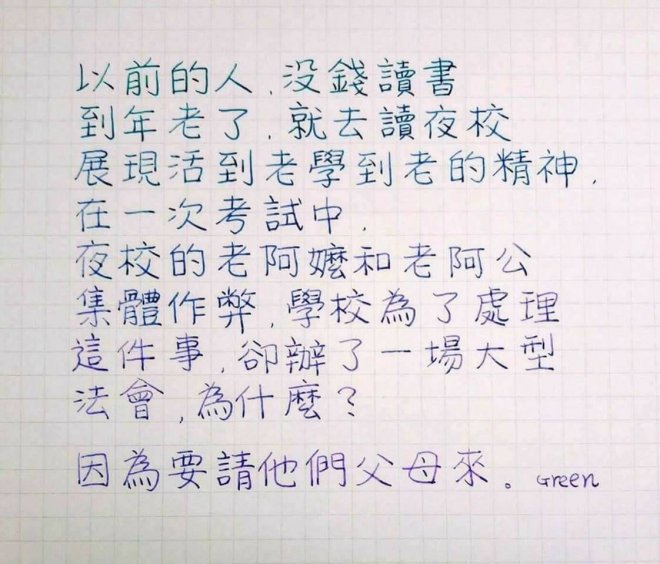 以前的人,沒錢讀書
到年老了,就去讀夜校
展現活到老學到老的精神,
在一次考試中,
夜校的老阿嬤和老阿公
集體作弊,學校為了處理
這件事,卻辦了一場大型
法會,為什麼?
因為要請他們父母來。Green